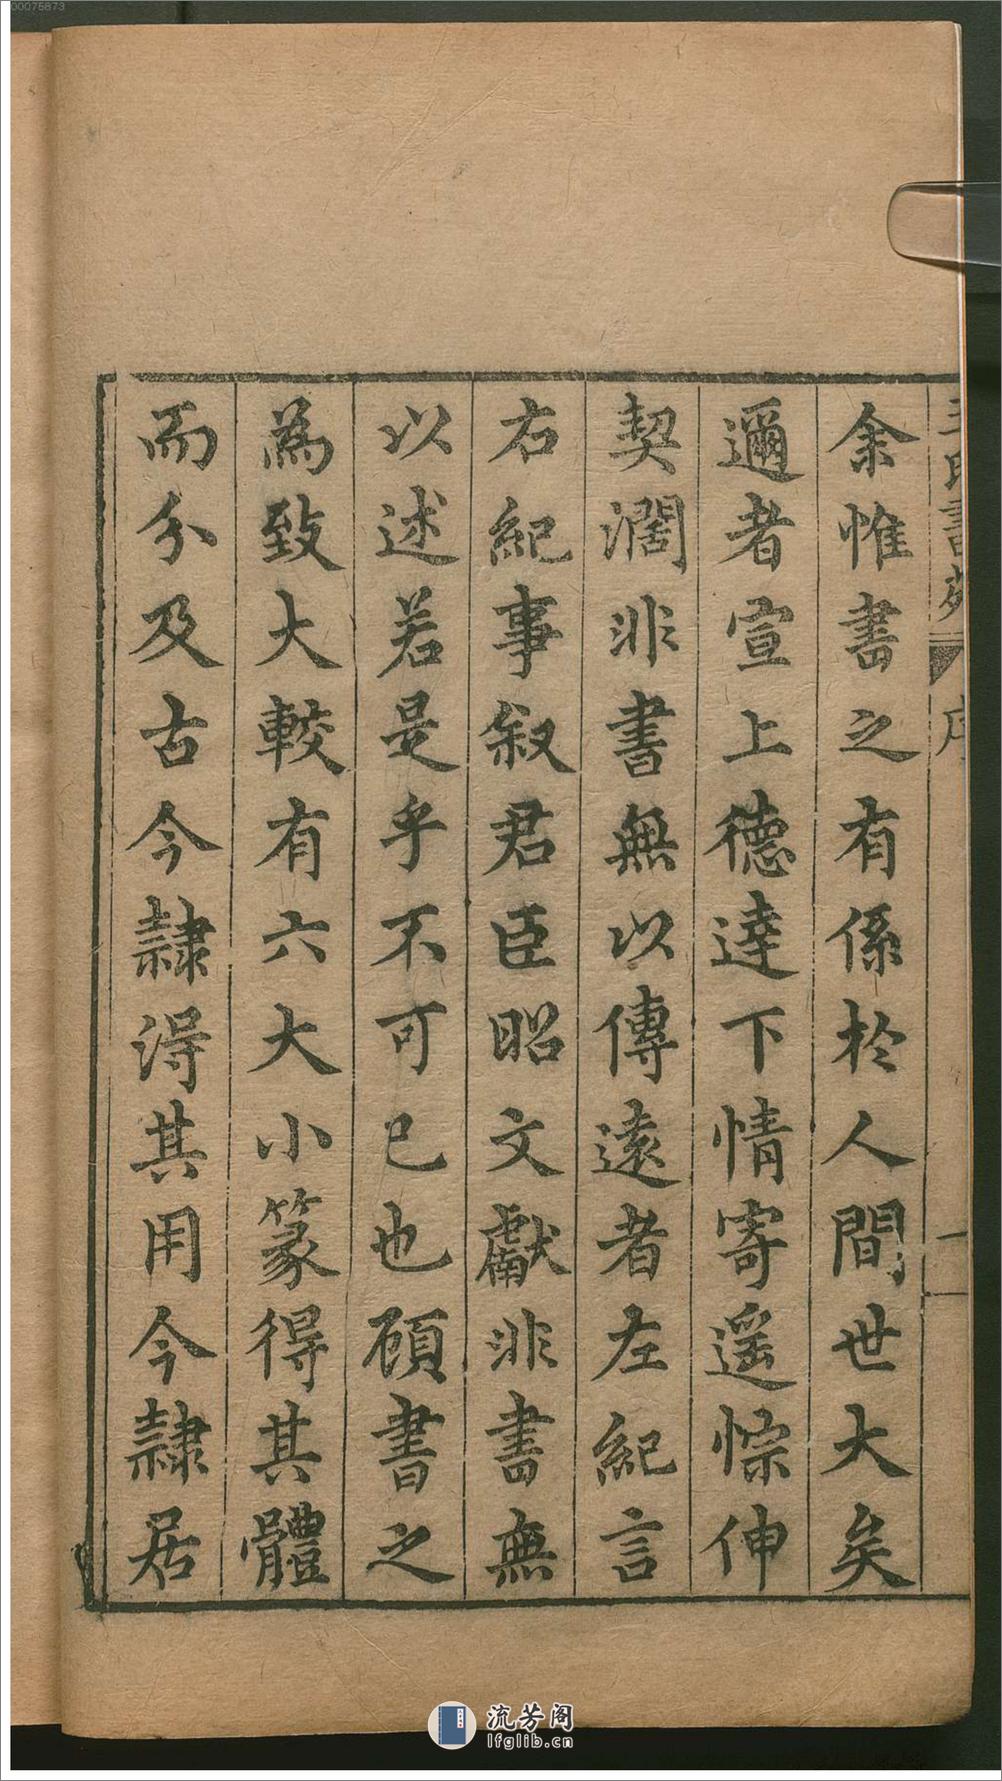 00075873
王氏書苑 序 一
余惟書之有係於人間世大矣
邇者宣上德達下情寄遥悰伸
契濶非書無以傳遠者左紀言
右紀事叙君臣昭文獻非書無
以述若是乎不可已也顧書之
為致大較有六大小篆得其體
而分及古今隸淂其用今隸居
流芳阁
lfglib.cn